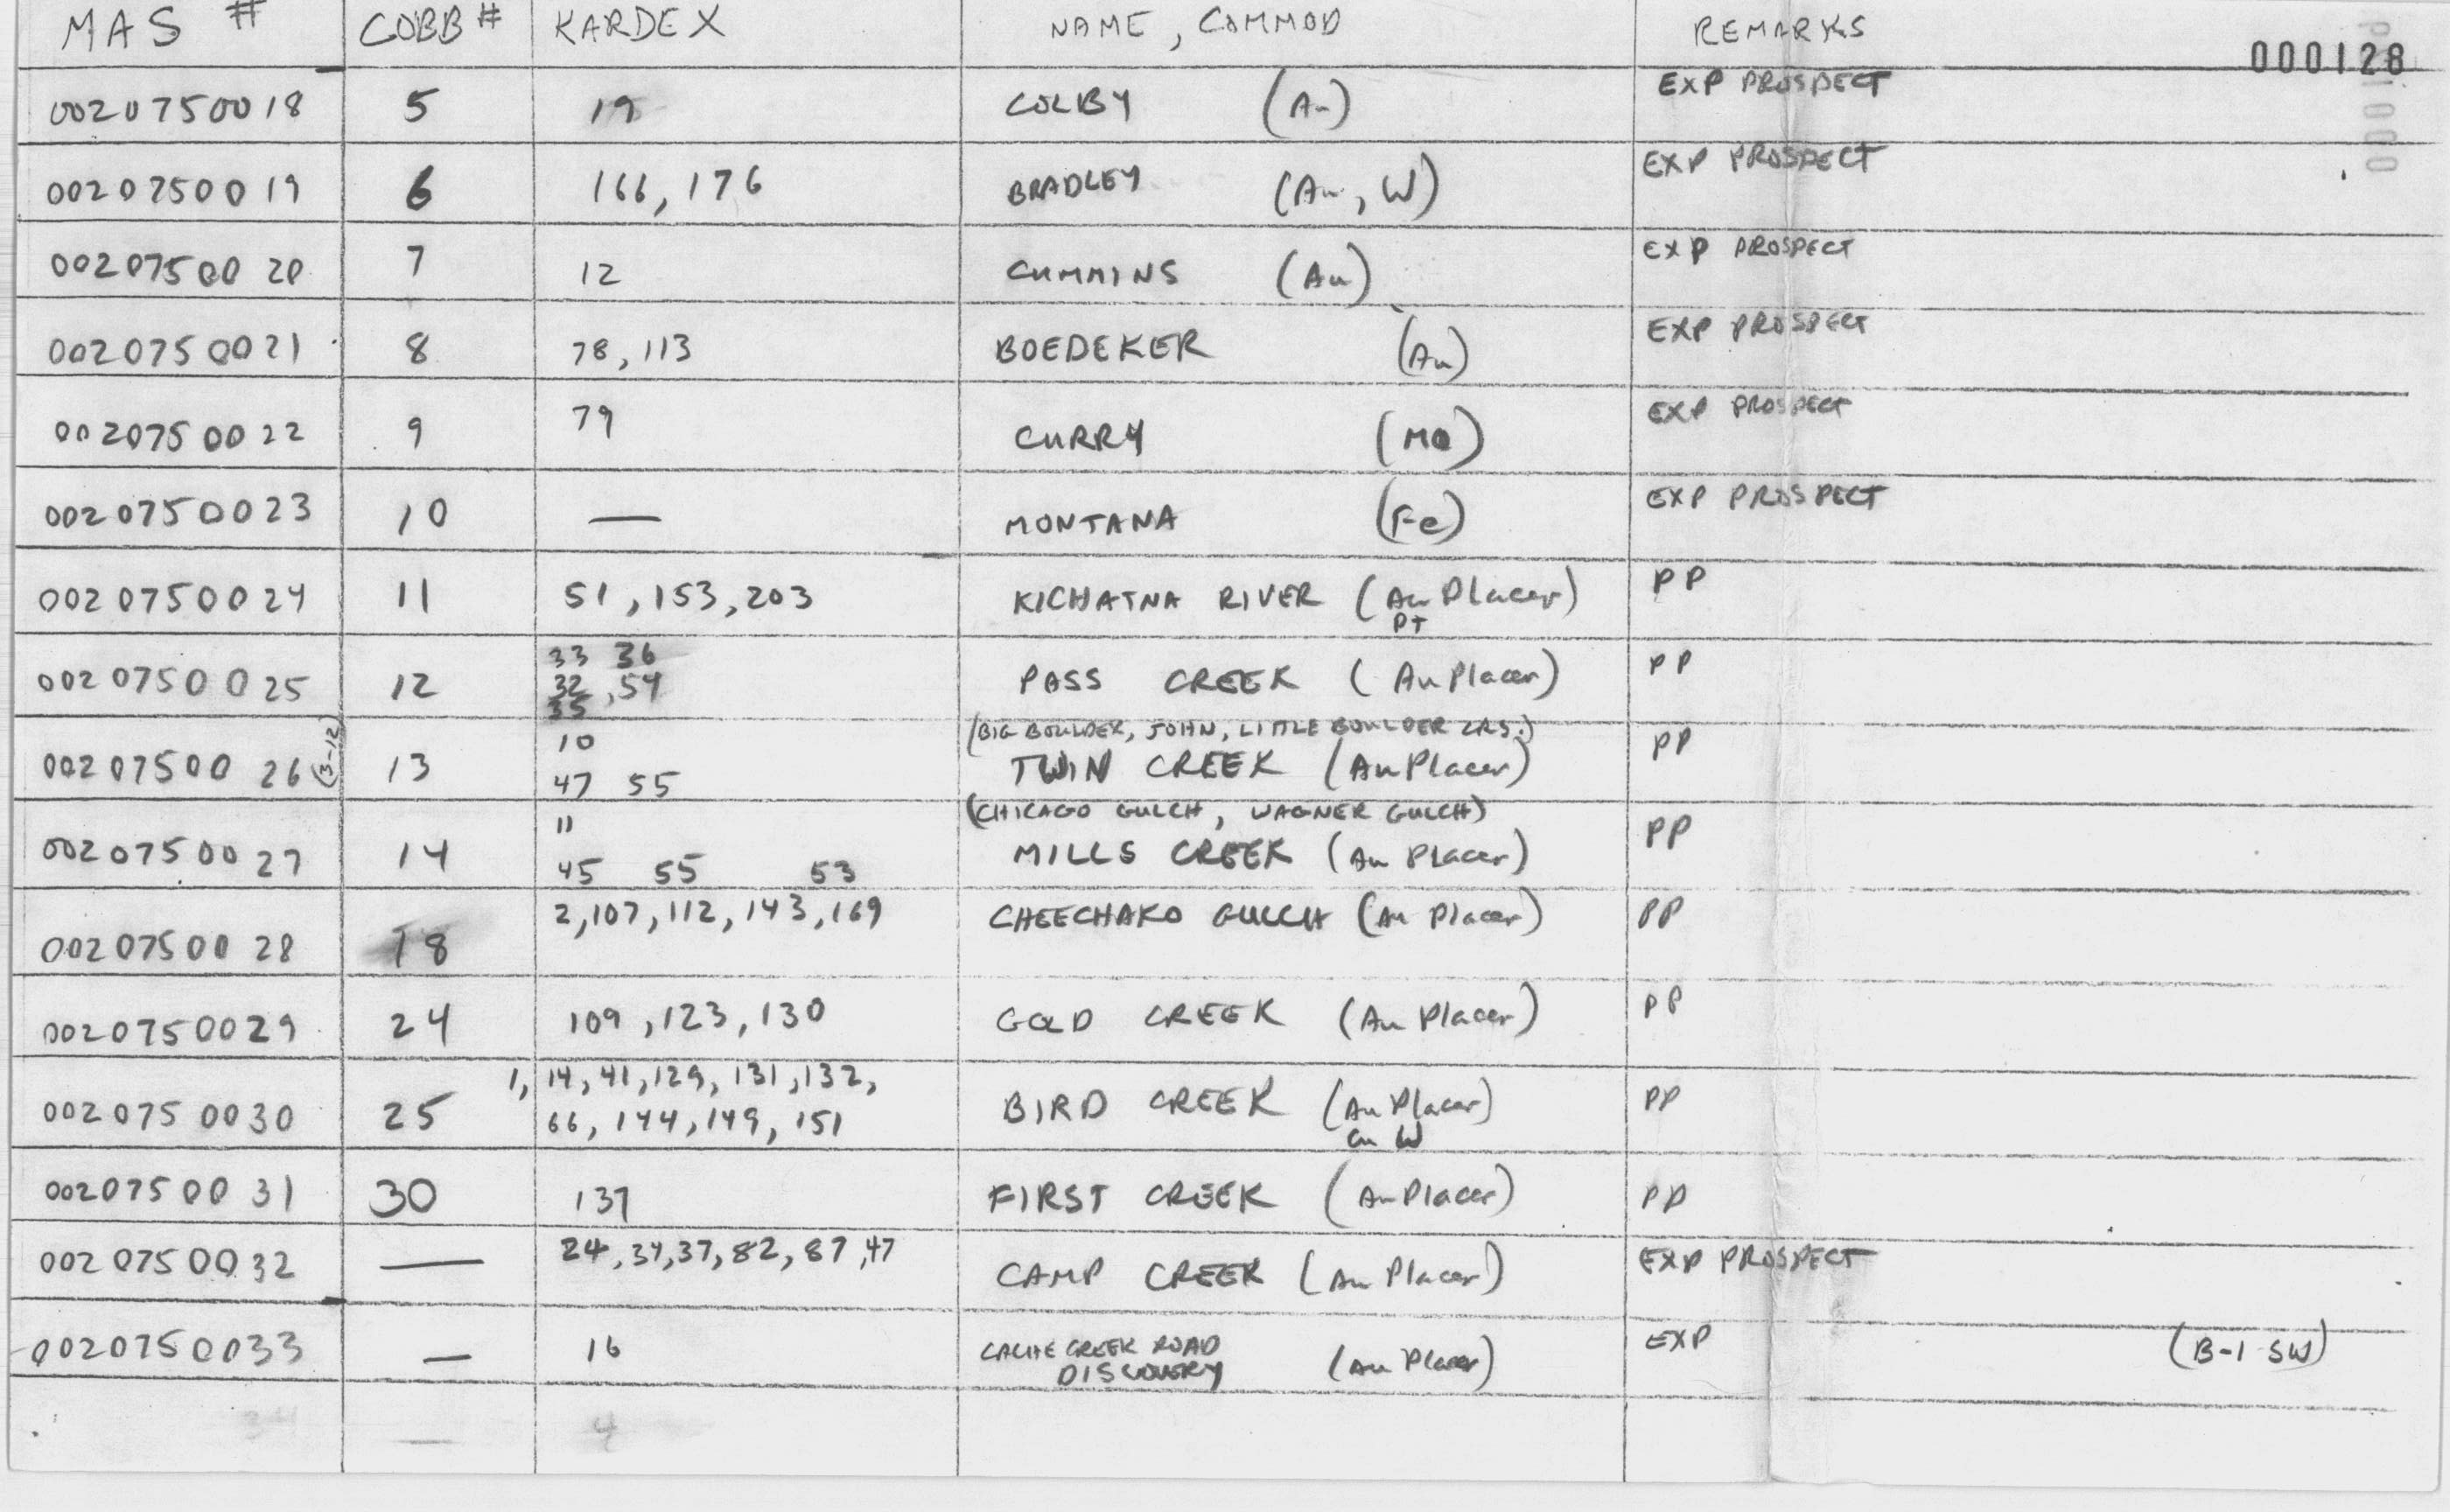 MAS # COBB # KARDEX NAME, COMMOD REMARKS
000128
0020750018 5 19 COLBY (Au) EXP PROSPECT
0020750019 6 166, 176 BRADLEY (Au, W) EXP PROSPECT
0020750020 7 12 CUMMINS (Au) EXP PROSPECT
0020750021 8 78, 113 BOEDEKER (Au) EXP PROSPECT
0020750022 9 79 CURRY (Mo) EXP PROSPECT
0020750023 10 — MONTANA (Fe) EXP PROSPECT
0020750024 11 51, 153, 203 KICHATNA RIVER (Au Placer) PP
PT
33 36
0020750025 12 32, 54 PASS CREEK (Au Placer) PP
35
(BIG BOULDER, JOHN, LITTLE BOULDER CRS.)
10
0020750026 (3-12) 13 47 55 TWIN CREEK (Au Placer) PP
(CHICAGO GULCH, WAGNER GULCH)
11
0020750027 14 45 55 53 MILLS CREEK (Au Placer) PP
0020750028 18 2, 107, 112, 143, 169 CHEECHAKO GULCH (Au Placer) PP
0020750029 24 109, 123, 130 GOLD CREEK (Au Placer) PP
1, 14, 41, 129, 131, 132,
0020750030 25 66, 144, 149, 151 BIRD CREEK (Au Placer) PP
Cu W
0020750031 30 137 FIRST CREEK (Au Placer) PP
0020750032 — 24, 34, 37, 82, 87, 47 CAMP CREEK (Au Placer) EXP PROSPECT
0020750033 — 16 CACHE CREEK ROAD
DISCOVERY (Au Placer) EXP (B-1 SW)
34 — 4